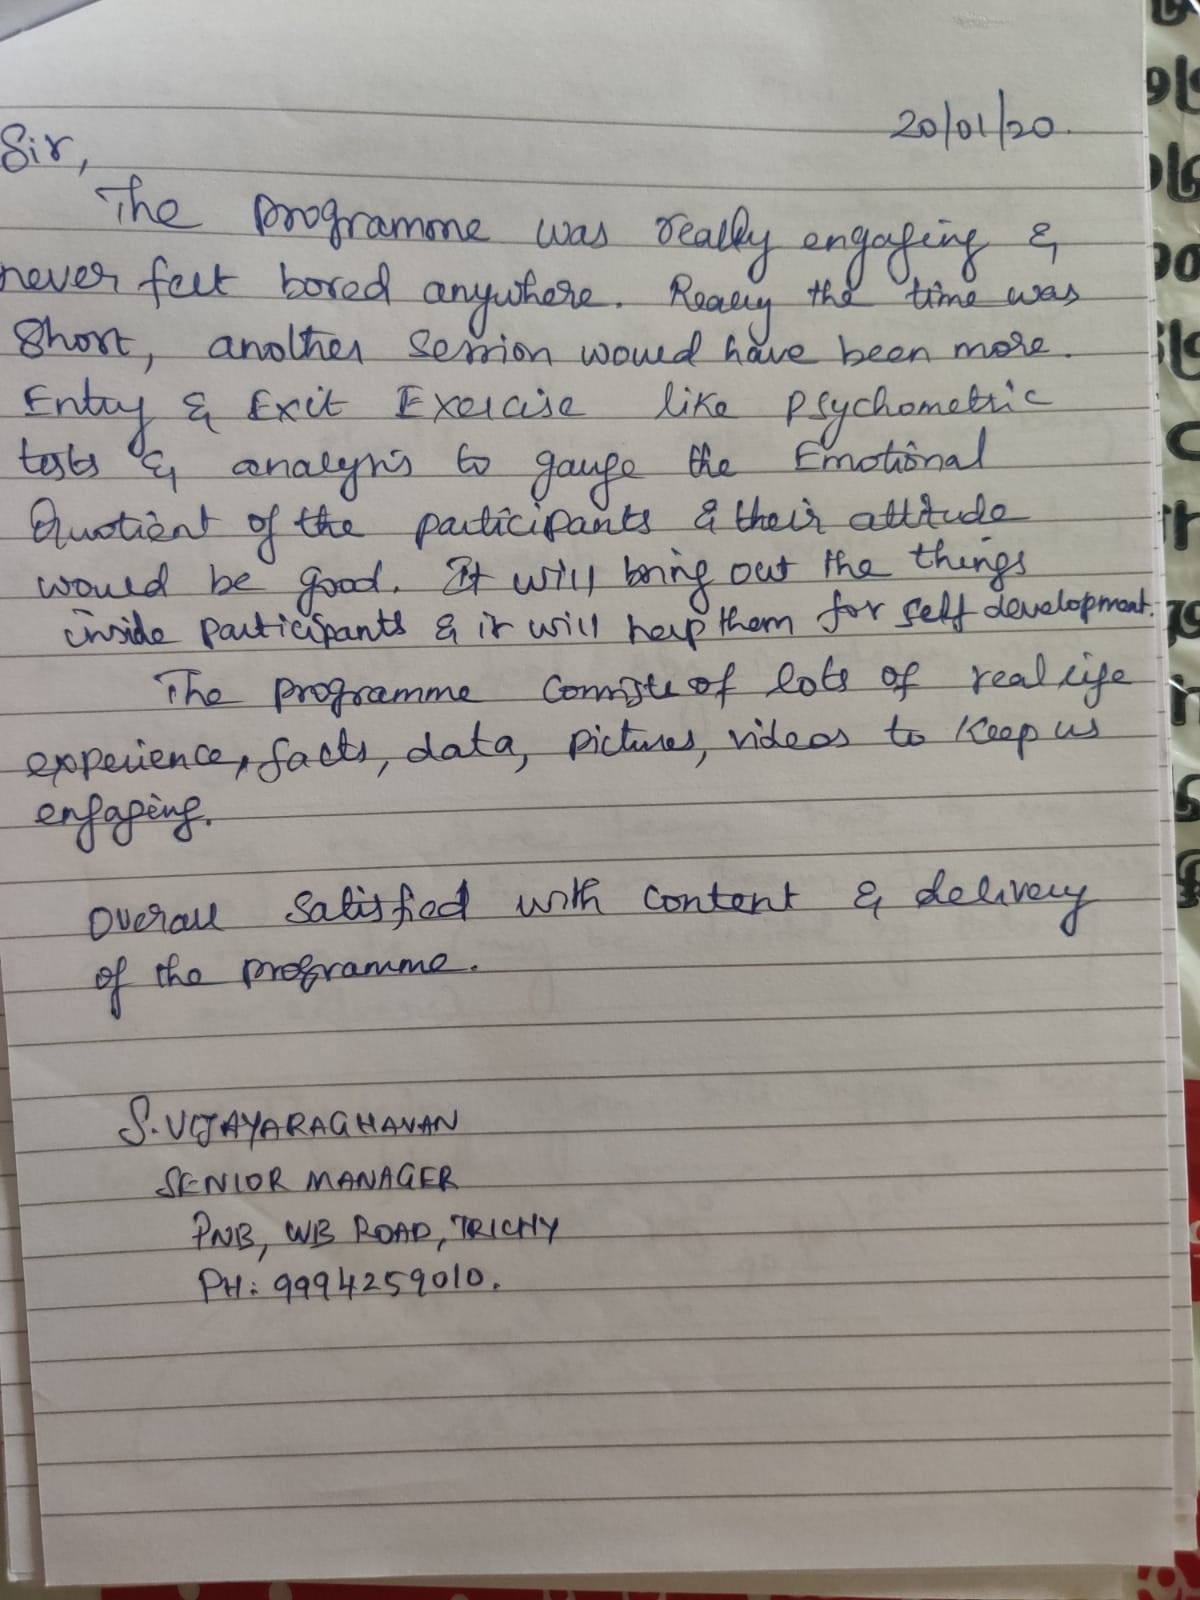 20/01/20.
Sir,
The programme was really engaging &
never felt bored anywhere. Really the time was
Short, another session would have been more.
Entry & Exit Exercise like psychometric
tests & analysis to gauge the Emotional
Quotient of the participants & their attitude
would be good. It will bring out the things
inside participants & it will help them for self development.
The programme consists of lots of real life
experience, facts, data, pictures, videos to keep us
engaging.
Overall satisfied with content & delivery
of the programme.
S. VIJAYARAGHAVAN
SENIOR MANAGER
PNB, WB ROAD, TRICHY
PH: 9994259010.